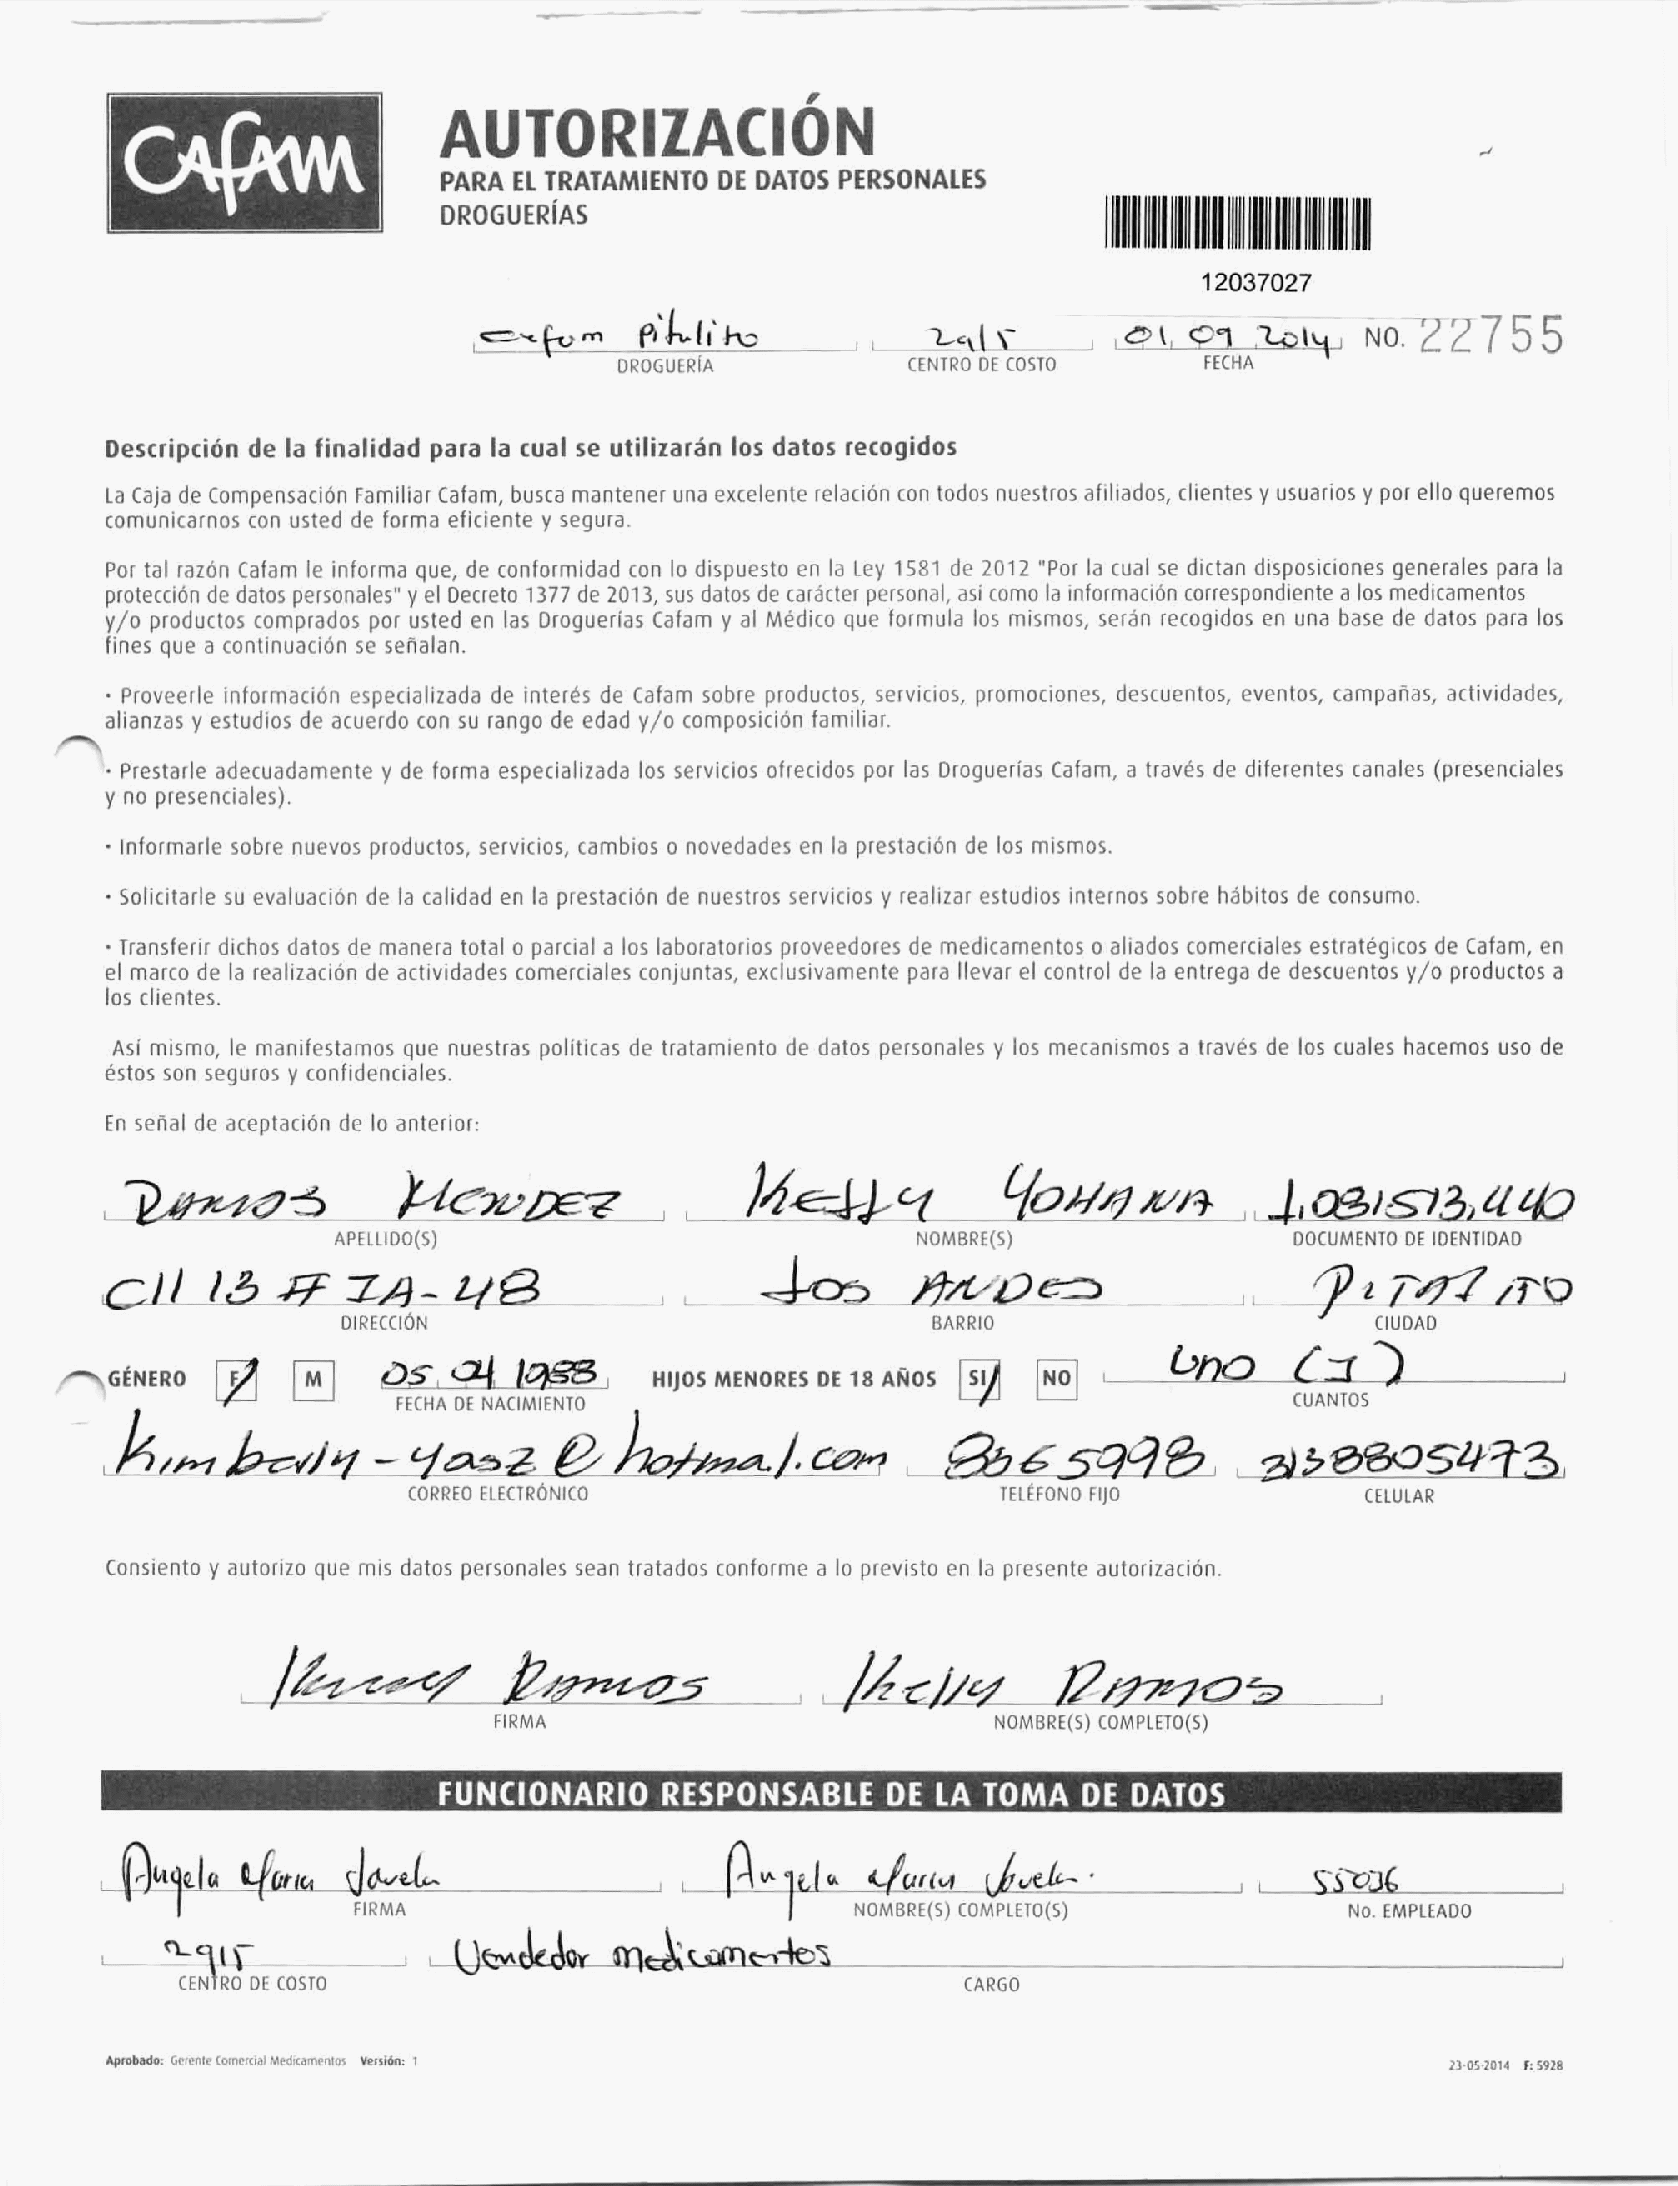 CAFAM
AUTORIZACIÓN
PARA EL TRATAMIENTO DE DATOS PERSONALES
DROGUERÍAS
12037027
Cafam Pitalito 2915 01 09 2014 NO. 22755
DROGUERÍA CENTRO DE COSTO FECHA
Descripción de la finalidad para la cual se utilizarán los datos recogidos
La Caja de Compensación Familiar Cafam, busca mantener una excelente relación con todos nuestros afiliados, clientes y usuarios y por ello queremos
comunicarnos con usted de forma eficiente y segura.
Por tal razón Cafam le informa que, de conformidad con lo dispuesto en la Ley 1581 de 2012 "Por la cual se dictan disposiciones generales para la
protección de datos personales" y el Decreto 1377 de 2013, sus datos de carácter personal, así como la información correspondiente a los medicamentos
y/o productos comprados por usted en las Droguerías Cafam y al Médico que formula los mismos, serán recogidos en una base de datos para los
fines que a continuación se señalan.
· Proveerle información especializada de interés de Cafam sobre productos, servicios, promociones, descuentos, eventos, campañas, actividades,
alianzas y estudios de acuerdo con su rango de edad y/o composición familiar.
· Prestarle adecuadamente y de forma especializada los servicios ofrecidos por las Droguerías Cafam, a través de diferentes canales (presenciales
y no presenciales).
· Informarle sobre nuevos productos, servicios, cambios o novedades en la prestación de los mismos.
· Solicitarle su evaluación de la calidad en la prestación de nuestros servicios y realizar estudios internos sobre hábitos de consumo.
· Transferir dichos datos de manera total o parcial a los laboratorios proveedores de medicamentos o aliados comerciales estratégicos de Cafam, en
el marco de la realización de actividades comerciales conjuntas, exclusivamente para llevar el control de la entrega de descuentos y/o productos a
los clientes.
Así mismo, le manifestamos que nuestras políticas de tratamiento de datos personales y los mecanismos a través de los cuales hacemos uso de
éstos son seguros y confidenciales.
En señal de aceptación de lo anterior:
RAMOS MENDEZ KELLY YOHANA 1.081513.440
APELLIDO(S) NOMBRE(S) DOCUMENTO DE IDENTIDAD
Cll 13 # 1A-48 LOS ANDES PITALITO
DIRECCIÓN BARRIO CIUDAD
GÉNERO F M 05 04 1988 HIJOS MENORES DE 18 AÑOS SI NO Uno (1)
FECHA DE NACIMIENTO CUANTOS
kimberly-yasz@hotmail.com 8365998 3138805473
CORREO ELECTRÓNICO TELÉFONO FIJO CELULAR
Consiento y autorizo que mis datos personales sean tratados conforme a lo previsto en la presente autorización.
Ramos Khelly Ramos
FIRMA NOMBRE(S) COMPLETO(S)
FUNCIONARIO RESPONSABLE DE LA TOMA DE DATOS
Angela Maria Javela Angela Maria Javela. 55036
FIRMA NOMBRE(S) COMPLETO(S) No. EMPLEADO
2915 Vendedor medicamentos
CENTRO DE COSTO CARGO
Aprobado: Gerente Comercial Medicamentos Versión: 1 23-05-2014 F: 5928